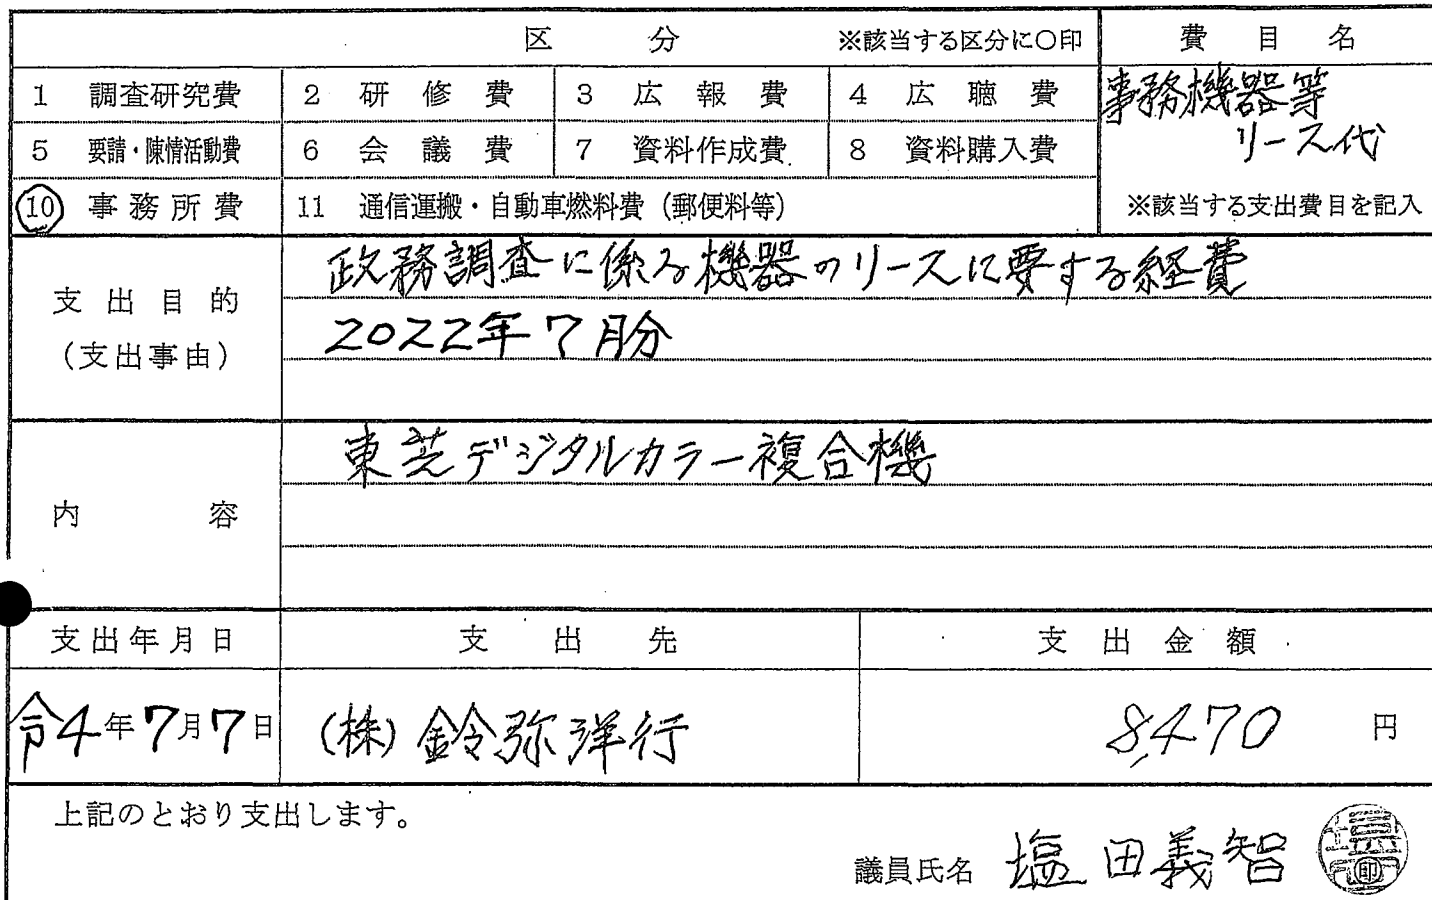 区 分 ※該当する区分に○印 費 目 名
1 調査研究費 2 研 修 費 3 広 報 費 4 広 聴 費 事務機器等
5 要請・陳情活動費 6 会 議 費 7 資料作成費 8 資料購入費 リース代
10 事 務 所 費 11 通信運搬・自動車燃料費（郵便料等） ※該当する支出費目を記入
支 出 目 的
（支出事由）
政務調査に係る機器のリースに要する経費
2022年7月分
内 容
東芝デジタルカラー複合機
支出年月日 支 出 先 支 出 金 額
令4年7月7日 (株)鈴弥洋行 8,470 円
上記のとおり支出します。
議員氏名 塩田義智 印